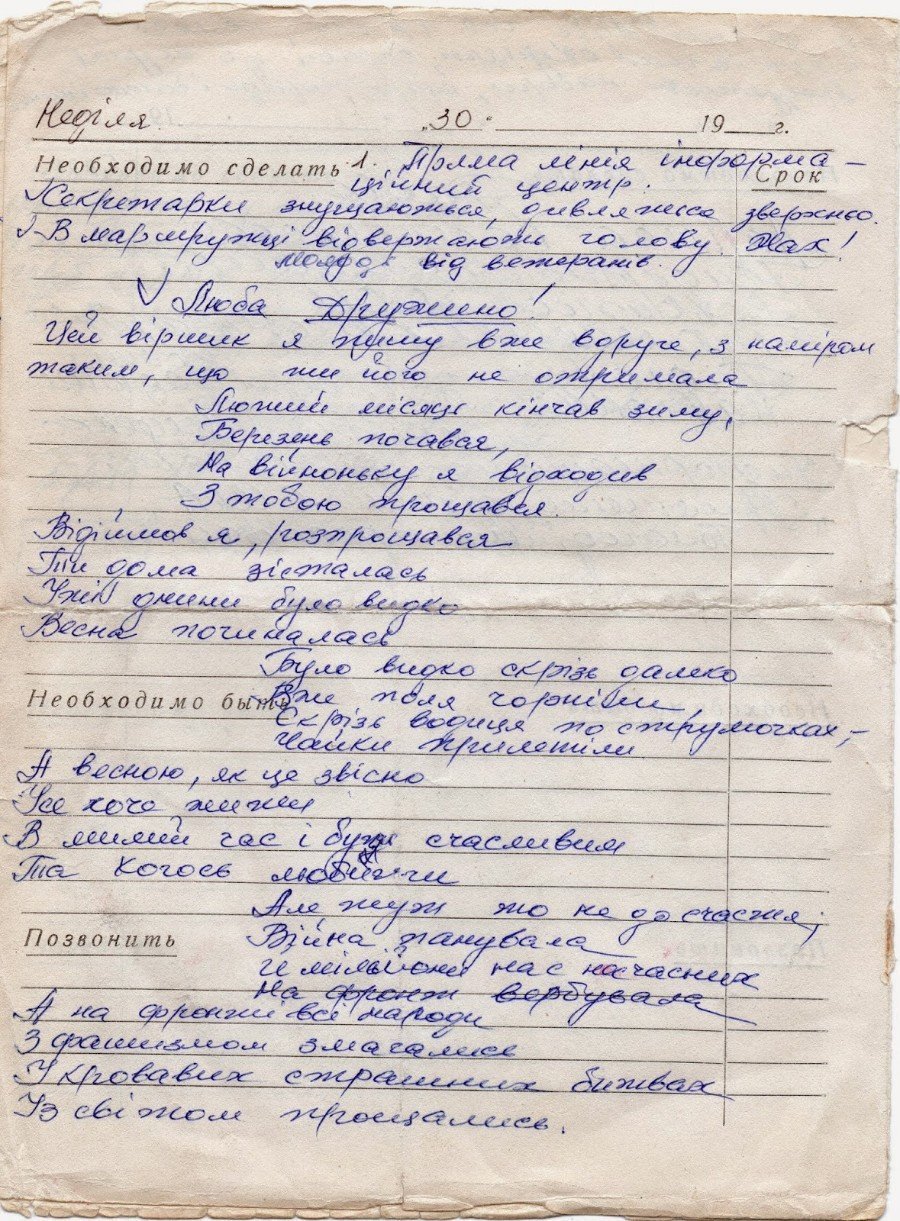 Неділя. „30“ 19 г.
Необходимо сделать 1. Пряма лінія інформа-
ційний центр. Срок
Секретарки знущаються, дивляться зверхньо.
В маршрутці відвертають голову. Жах!
молоді від ветеранів.
Люба Дружино!
Цей віршик я пишу вже вдруге, з наміром
таким, що ти його не отримала
Лютий місяць кінчав зиму,
Березень почався,
На війноньку я відходив
З тобою прощався.
Відіймов я, розпрощався
Ти дома зісталась
У тій днини було видко
Весна починалась
Було видко скрізь далеко
Необходимо быть Вже поля чорніли,
Скрізь водиця по струмочках,-
Чайки прилетіли
А весною, як це звісно
Усе хоче жити
В милий час і бути счасливим
Та когось любити
Але тут то не до счастя,
Позвонить Війна панувала
И мільйони нас нечасних
На фронт вербувала
А на фронті всі народи
З фашизмом змагались
У кровавих страшних битвах
Із світом прощались.